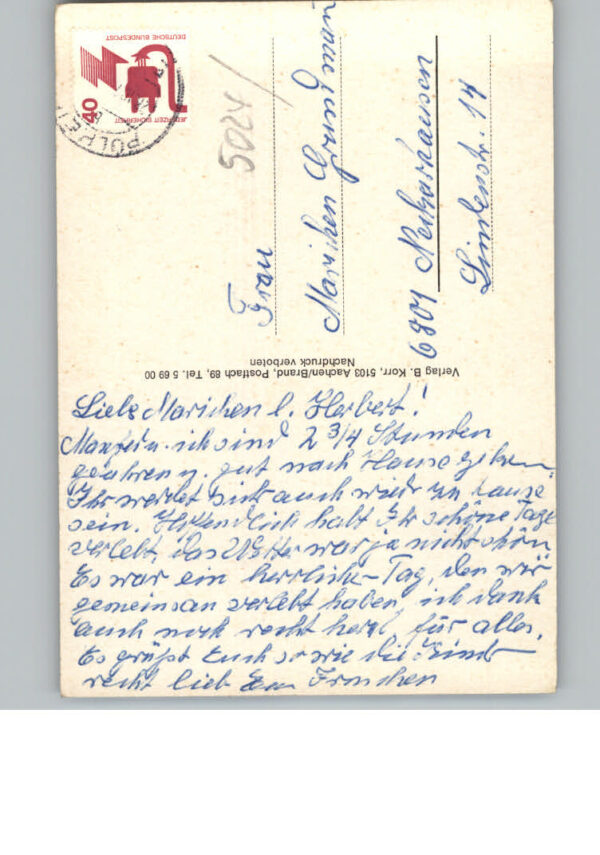 DEUTSCHE BUNDESPOST
JEDERZEIT SICHERHEIT
40
PULHEIM
5024/
Frau
Marichen Grundmann
6801 Neckarhausen
Lindenstr. 14
Verlag B. Korr, 5103 Aachen/Brand, Postfach 89, Tel. 5 69 00
Nachdruck verboten
Liebe Marichen l. Herbert!
Manfred u. ich sind 2 3/4 Stunden
gefahren u. gut nach Hause gekommen.
Ihr werdet sicher auch wieder zu Hause
sein. Hoffendlich habt Ihr schöne Tage
verlebt, das Wetter war ja nicht schön.
Es war ein herrlicher Tag, den wir
gemeinsam verlebt haben, ich dank
auch noch recht herzl. für alles.
Es grüßt Euch so wie die Kinder
recht lieb Eure